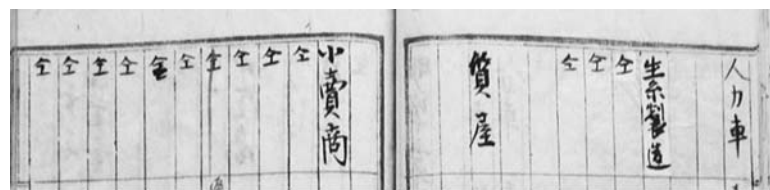 人力車
生糸製造
仝
仝
仝
質屋
小賣商
仝
仝
仝
仝
仝
仝
仝
仝
仝
仝